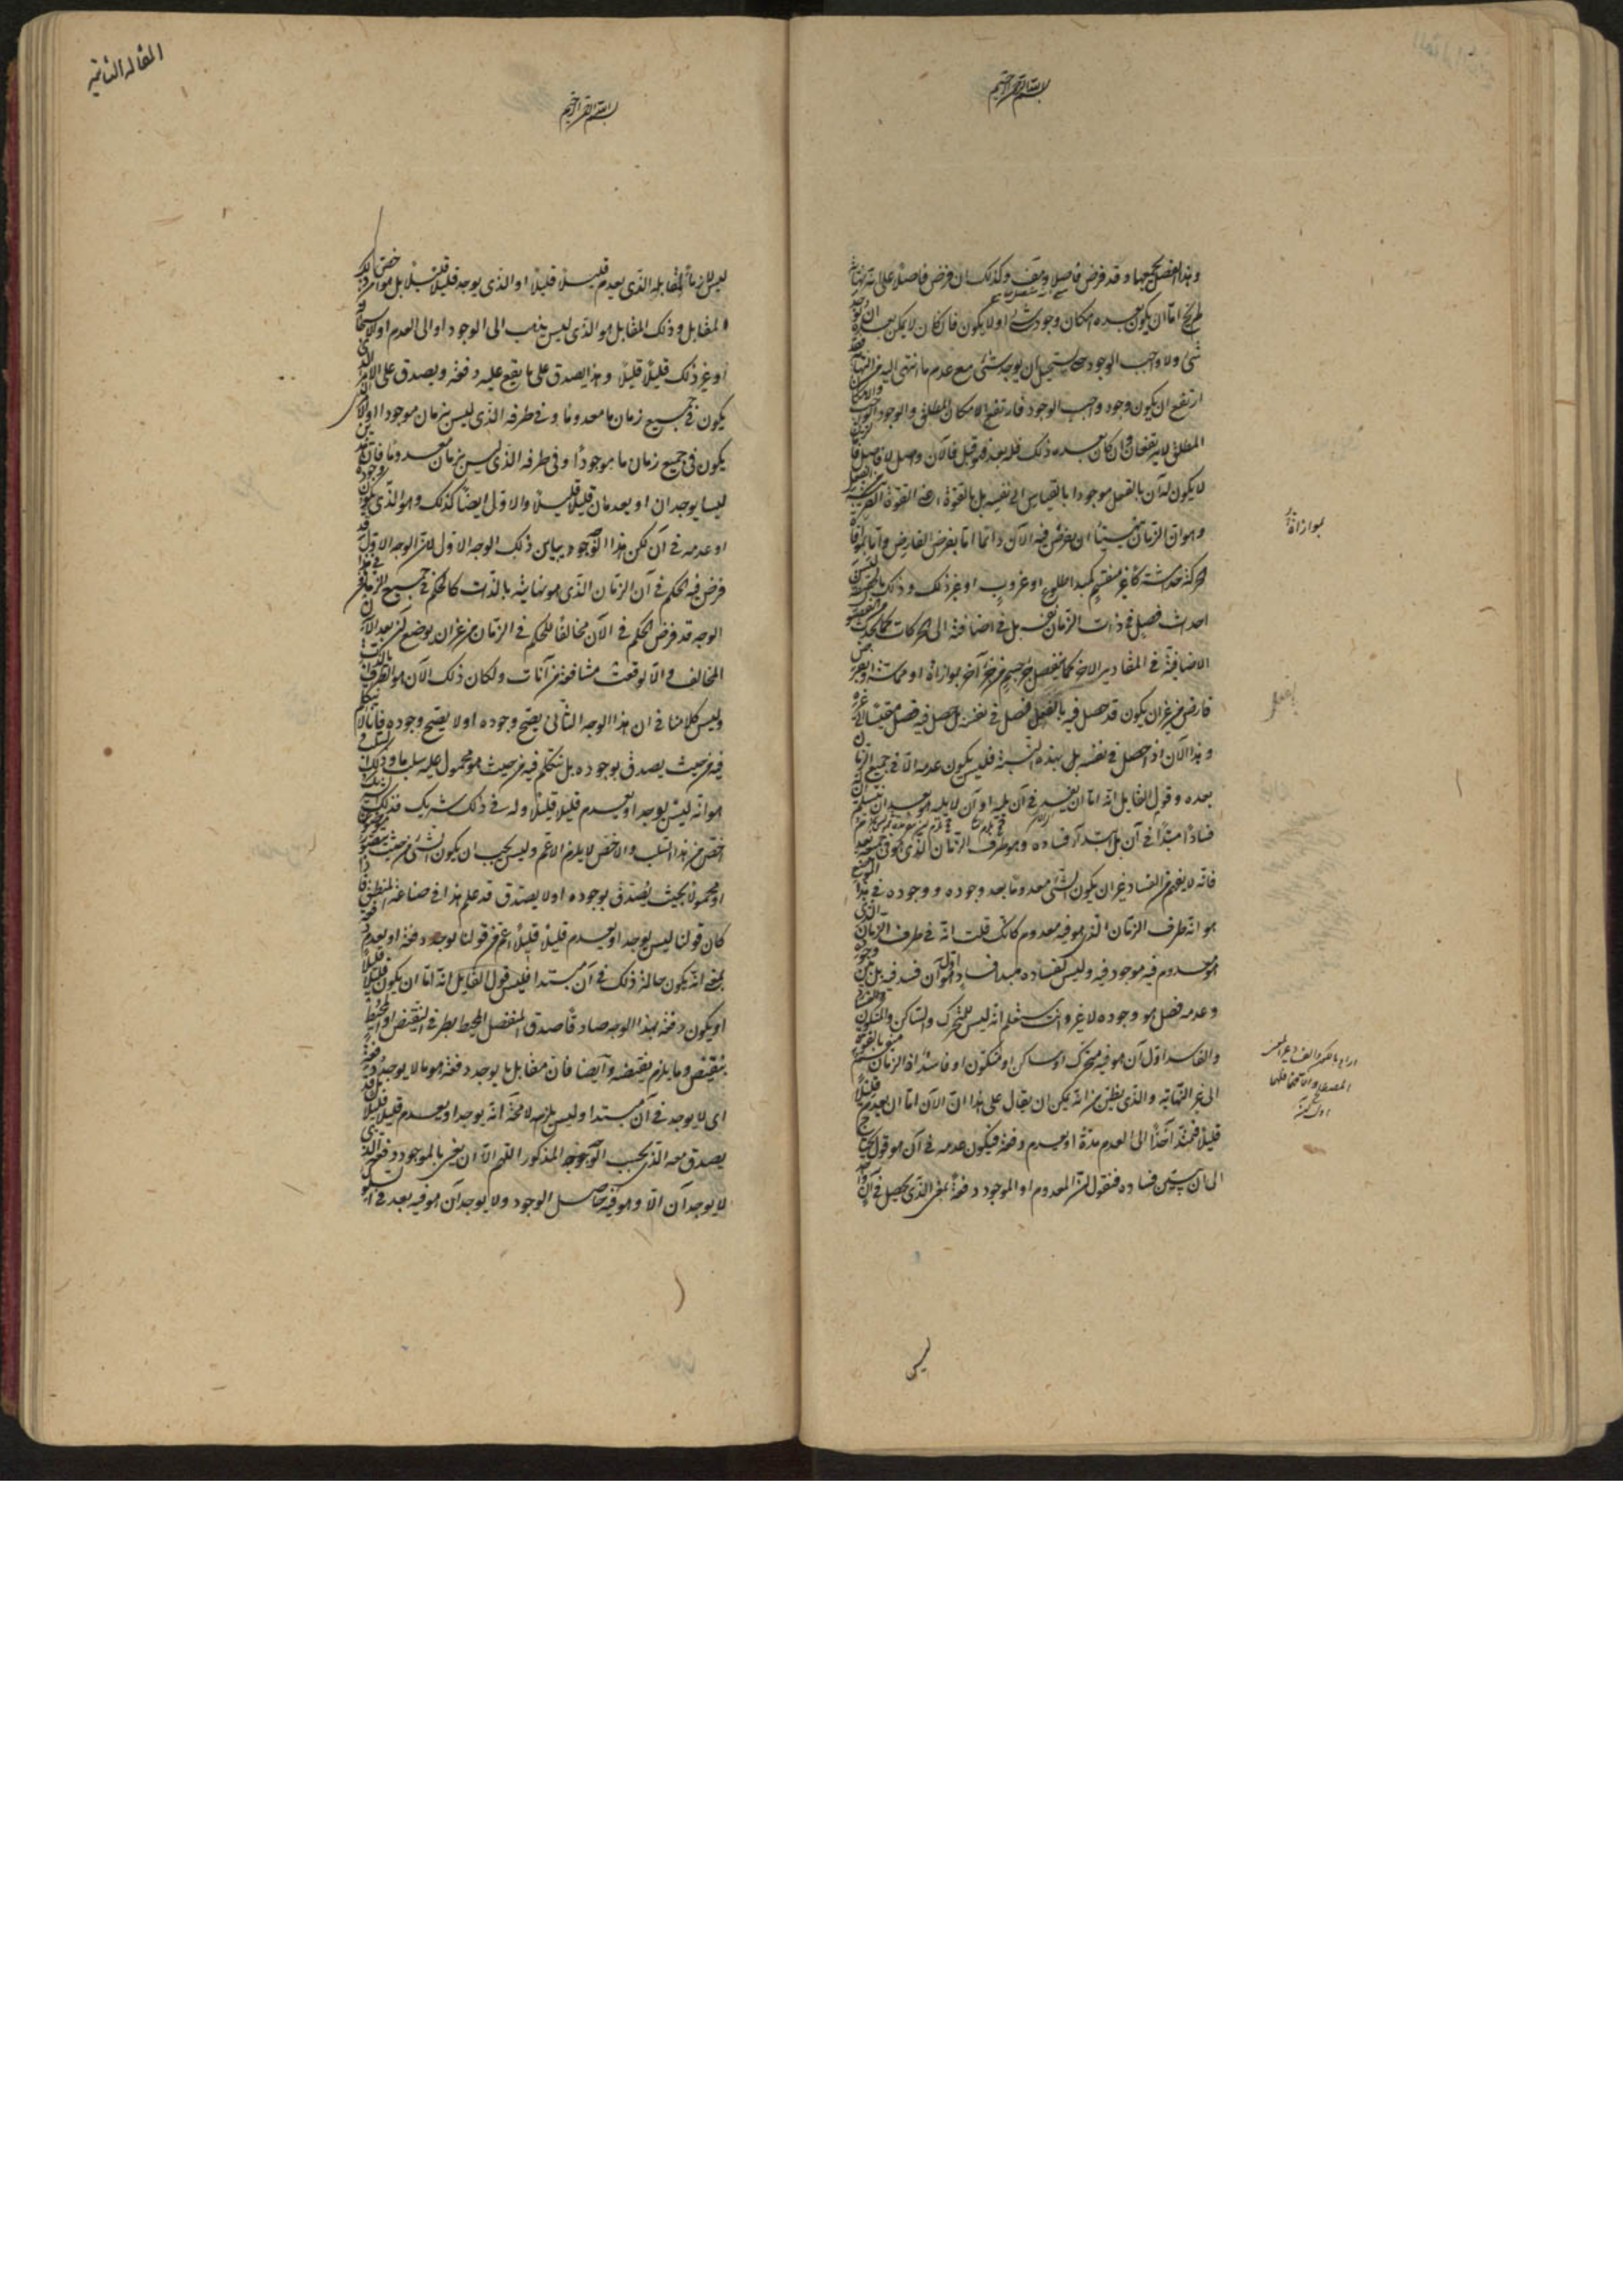 بسم الله الرحمن الرحيم
وقد فرض فاصلا وكذلك ان فرض فاصلا على انه نهاية
اما ان يكون بعده امكان وجود شئ او لا يكون فان كان لا يمكن بعده ان يوجد
شئ ولا واجب الوجود حتى يستحيل ان يوجد شئ مع عدم ما انتهى اليه فقد
ارتفع ان يكون وجود واجب الوجود فارتفع الامكان المطلق والوجوب
المطلق لا يرتفعان وان كان بعده ذلك فله بعد فهو قبل فالآن واصل لا فاصل
لا يكون له آن بالفعل موجودا بالقياس الى نفسه بل بالقوة اعنى القوة القريبة
وهو ان الزمان يتهيأ ان يفرض فيه الآن دائما اما بفرض الفارض واما بموافاة
الحركة حدا مشتركا غير منقسم كمبدا طلوع او غروب او غير ذلك وذلك بالحقيقة ليس
احداث فصل فى ذات الزمان نفسه بل فى اضافته الى الحركات كما يحدث
الاضافية فى المقادير الاخر كما ينفصل جزء جسم من جزء آخر بموازاة او مماسة
فارض من غير ان يكون قد حصل فيه بالفعل فصل فى نفسه بل حصل فيه فصل مقيسا الى غيره
وهذا الآن اذا حصل فى نفسه بل بهذه النسبة فليس يكون عدمه الا فى جميع الزمان
بعده وقول القايل انه اما ان يفسد فى آن يليه او آن لا يليه هو بعد ان يتسلم ان له
فسادا مبتدأ فى آن بل ابتداء فساده وهو طرف الزمان الذى هو فى جميعه معدوم
فانه لا يفهم من الفساد غير ان يكون الشئ معدوما بعد وجوده ووجوده فى هذا الموضع
هو انه طرف الزمان الذى هو فيه معدوم كانك قلت انه فى طرف الزمان الذى
هو معدوم فيه موجود فيه وليس لفساده مبدا فساد هو اول آن فسد فيه بل بين وجوده
وعدمه فصل هو وجوده لا غير وانت ستعلم انه ليس للمتحرك والساكن والمتكون
والفاسد اول آن هو فيه متحرك او ساكن او متكون او فاسد اذ الزمان منقسم بالقوة
الى غير النهاية والذى يظن من انه يمكن ان يقال على هذا ان الآن اما ان يعدم قليلا
قليلا فيمتد آخذا الى العدم مدة او يعدم دفعة فيكون عدمه فى آن هو قول يحتاج
الى ان يتبين فساده فنقول ان المعدوم او الموجود دفعة بمعنى الذى يحصل فى آن واحد
بموازاة
بالفعل
ليس
المقالة الثانية
بسم الله الرحمن الرحيم
ليس لازما لمقابله الذى يعدم قليلا قليلا او الذى يوجد قليلا قليلا بل هو اخص من ذلك
المقابل وذلك المقابل هو الذى ليس يذهب الى الوجود او الى العدم او الاستحالة
او غير ذلك قليلا قليلا وهذا يصدق على ما يقع عليه دفعة ويصدق على الامر الذى
يكون فى جميع زمان ما معدوما وفى طرفه الذى ليس بزمان موجودا او الامر الذى
يكون فى جميع زمان ما موجودا وفى طرفه الذى ليس بزمان معدوما فان هذين
ليسا يوجدان او يعدمان قليلا قليلا والاول ايضا كذلك وهو الذى يكون وجوده
او عدمه فى آن لكن هذا الوجه يباين ذلك الوجه الاول لان الوجه الاول قد
فرض فيه الحكم فى آن الزمان الذى هو نهايته بالذات كالحكم فى جميع الزمان وفى هذا
الوجه قد فرض الحكم فى الآن مخالفا للحكم فى الزمان من غير ان يوضع لهذا الآن
المخالف والا لوقعت مشافعة بين آنات ولكان ذلك الآن هو الطرف بالذات
وليس كلامنا فى ان هذا الوجه الثانى يصح وجوده او لا يصح وجوده فانا لا نتكلم
فيه من حيث يصدق بوجوده بل نتكلم فيه من حيث هو محمول عليه سلب ما وذلك السلب
هو انه ليس يوجد او يعدم قليلا قليلا وله فى ذلك شريك فذلك الشريك
اخص من هذا السلب والاخص لا يلزم الاعم وليس يجب ان يكون الشئ من حيث يتصور موضوعا
او محمولا بحيث يصدق بوجوده او لا يصدق قد علم هذا فى صناعة المنطق فاذا
كان قولنا ليس يوجد او يعدم قليلا قليلا اعم من قولنا يوجد دفعة او يعدم دفعة
بمعنى انه يكون حاله ذلك فى آن مبتدا فليس قول القايل انه اما ان يكون قليلا قليلا
او يكون دفعة بهذا الوجه صادقا صدق المنفصل المحيط بطرفى النقيض او المحيط
بنقيض وما يلزم نقيضه وايضا فان مقابل ما يوجد دفعة هو ما لا يوجد دفعة
اى لا يوجد فى آن مبتدا وليس يلزم لا محة انه يوجد او يعدم قليلا قليلا بل قد
يصدق معه الذى بحسب الوجه المذكور اللهم الا ان يعنى بالموجود دفعة الذى
لا يوجد آن الا وهو فيه حاصل الوجود ولا يوجد آن هو فيه بعد فى السلوك